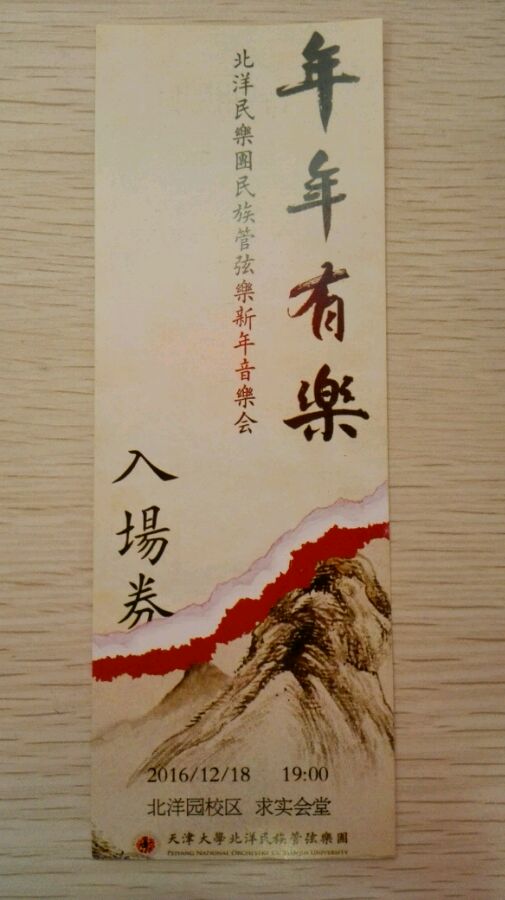 年年有樂
北洋民樂團民族管弦樂新年音樂会
入場券
2016/12/18 19:00
北洋园校区 求实会堂
天津大學北洋民族管弦樂團
PEIYANG NATIONAL ORCHESTRA OF TIANJIN UNIVERSITY